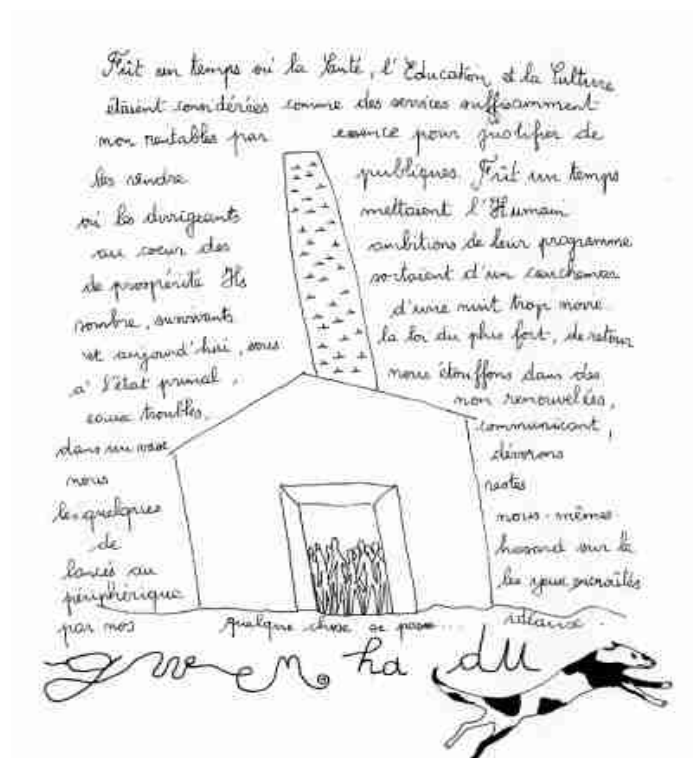 Fût un temps où la Santé, l'Education, et la Culture
étaient considérées comme des services suffisamment
non rentables par essence pour justifier de
les rendre publiques. Fût un temps
où les dirigeants mettaient l'Humain
au coeur des ambitions de leur programme
de prospérité Ils sortaient d'un cauchemar
sombre, survivants d'une nuit trop noire.
et aujourd'hui, sous la loi du plus fort, de retour
à l'état primal, nous étouffons dans des
eaux troubles, non renouvelées,
dans un vase communicant,
nous dévorons
les quelques restes
de nous-mêmes
lancés au hasard sur le
périphérique les yeux
par nos
quelque chose se passe...
gwen ha du